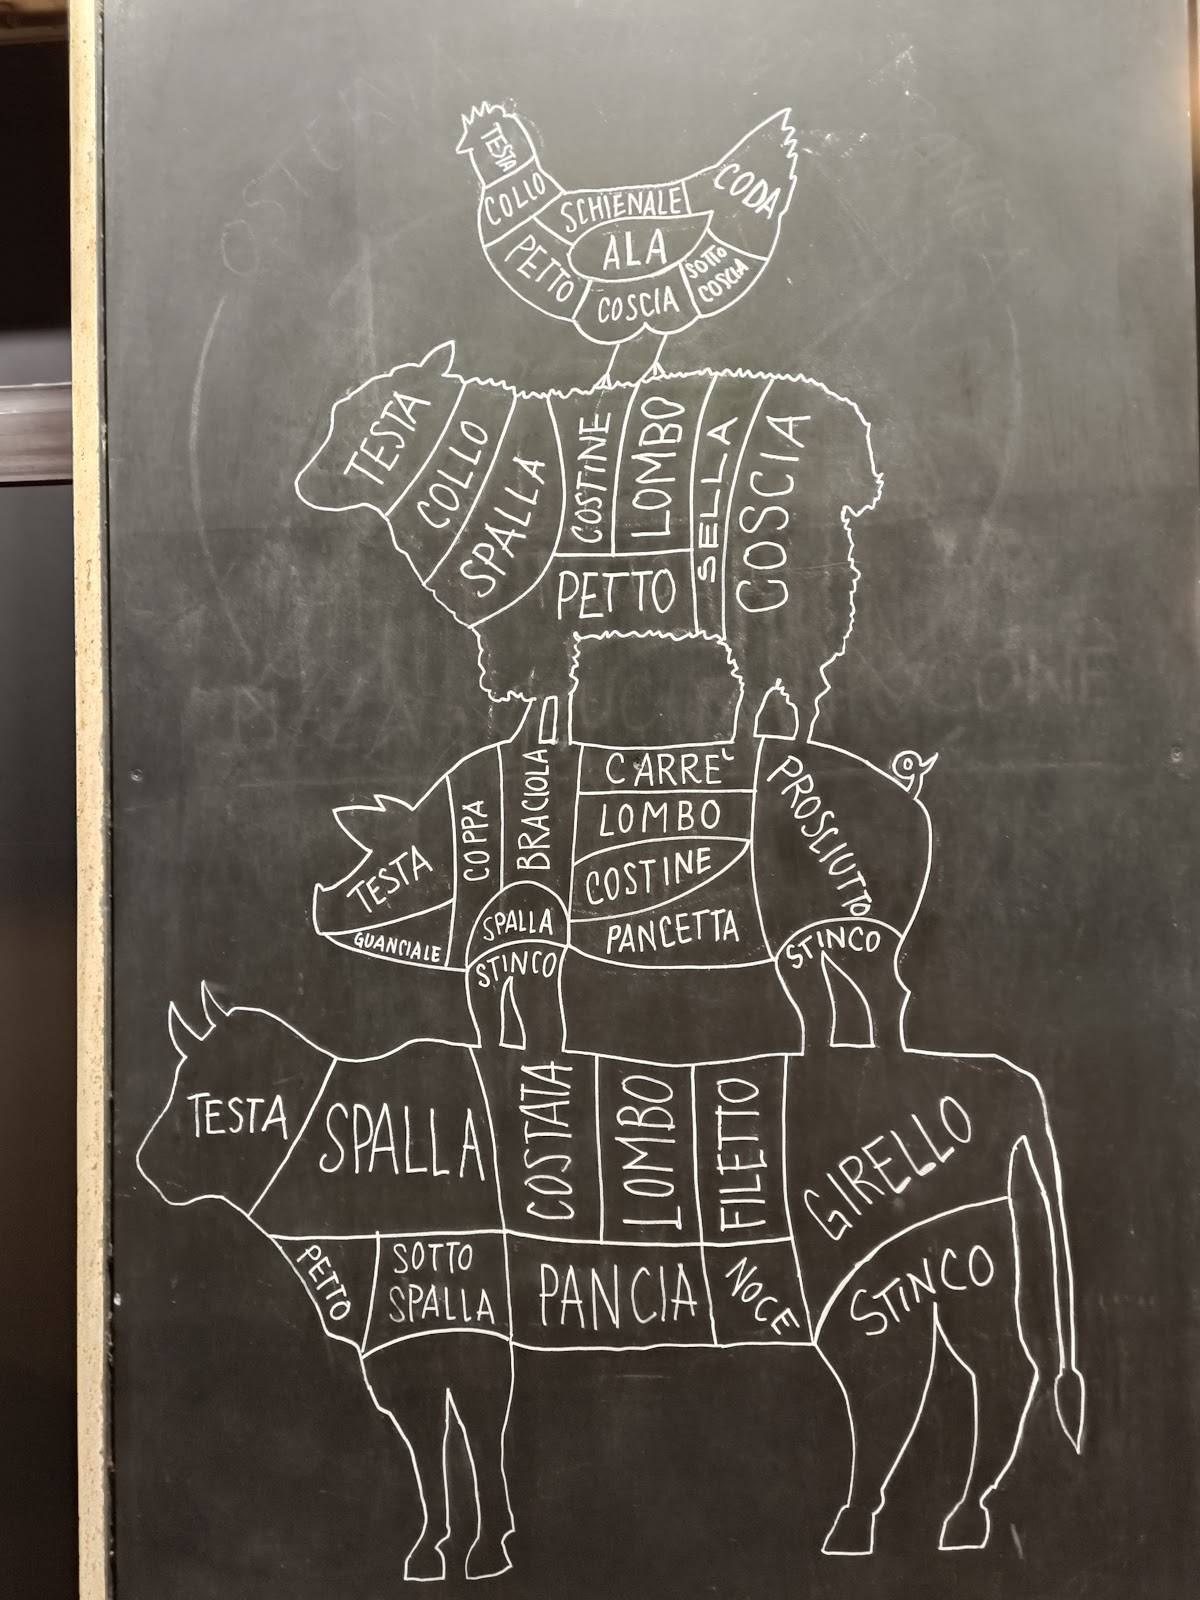 TESTA
COLLO
SCHIENALE
CODA
ALA
PETTO
COSCIA
SOTTO
COSCIA
TESTA
COLLO
SPALLA
COSTINE
LOMBO
SELLA
COSCIA
PETTO
TESTA
GUANCIALE
COPPA
BRACIOLA
SPALLA
STINCO
CARRE'
LOMBO
COSTINE
PANCETTA
PROSCIUTTO
STINCO
TESTA
SPALLA
COSTATA
LOMBO
FILETTO
GIRELLO
PETTO
SOTTO
SPALLA
PANCIA
NOCE
STINCO